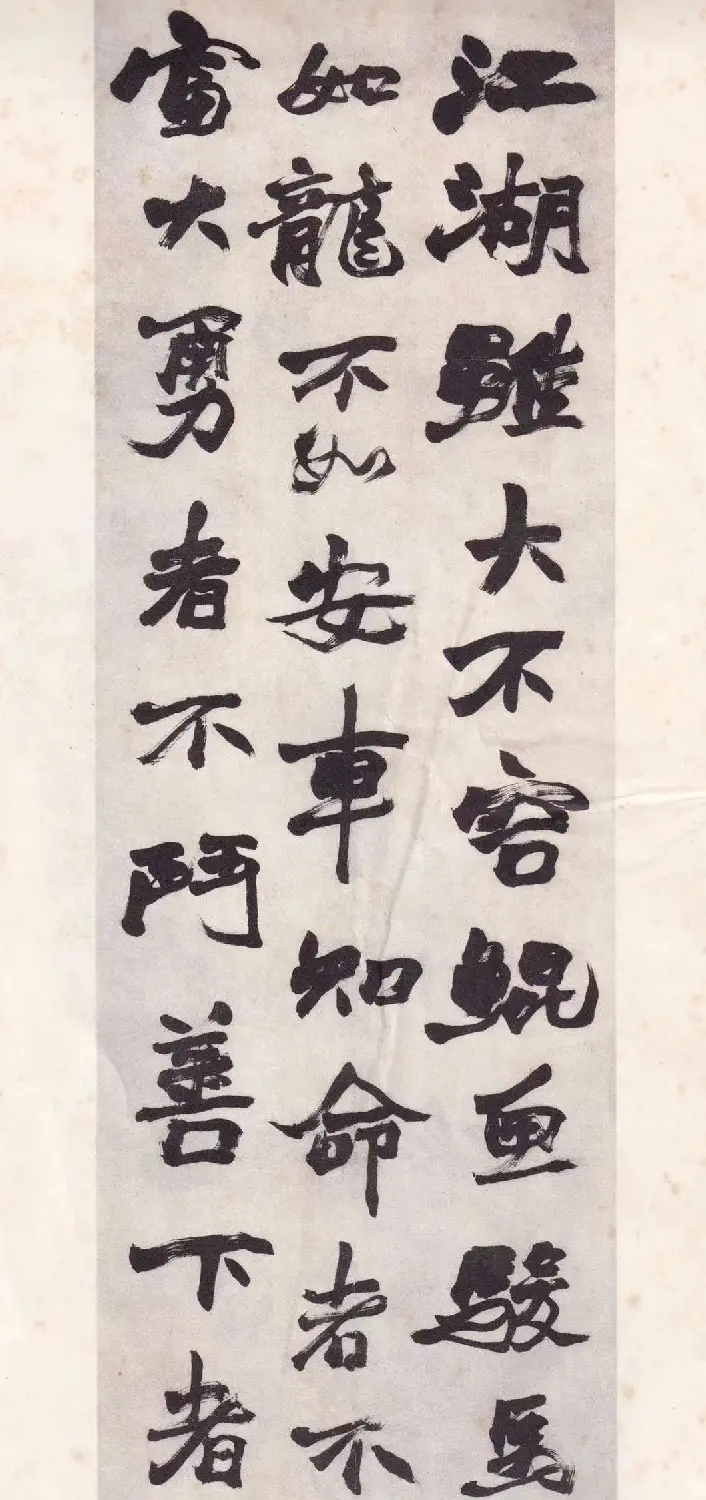 江湖雖大不容鯤魚駿馬
如龍不如安車知命者不
富大勇者不鬥善下者